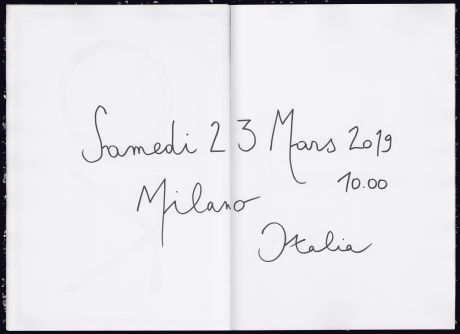 Samedi 23 Mars 2019
10.00
Milano
Italia